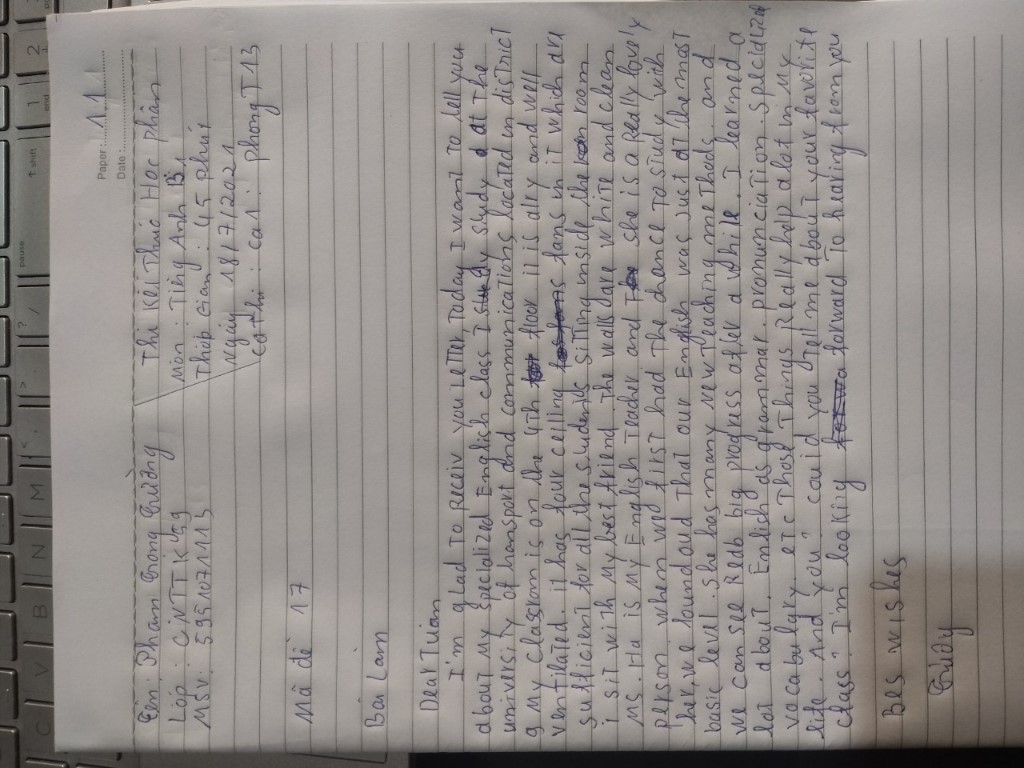 C V B N M < , > . ? / pause ↑ shift 1 end 2
Paper : 11
Date :
Tên: Phạm Trọng Trường
Thi Kết Thúc Học phần
Lớp : CNTT K59
Môn : Tiếng Anh B1
MSV: 5951071113
Thời Gian : 45 phút
Ngày 18/7/2021
Ca thi : ca 1 : phong T13
Mã đề 17
Bài Làm
Dear Tuan
I'm glad to Receiv you Letter, Today I want to tell you
about My specialized English class I study at The
university of transport and communications located in district
9 My Classrom is on the 4th floor it is airy and well
ventilated. it has four ceiling fans in it which are
sufficient for all the students sitting inside the room
i sit with My best friend. The walls are white and clean
MS. Ha is My English Teacher and she is a Really lovely
person. when we first had The chance To study with
her, we found oud That our English was just at the most
basic level. She has many New Teaching methods. and
we can see Redb big progress after a while. I learned a
lot about. Enlish as grammar. pronunciation. specialized
vocabulary. etc Those Things Really help a lot in My
life. And you? could you Tell me about your favorite
class? I'm looking forward To hearing from you
Bes wishes